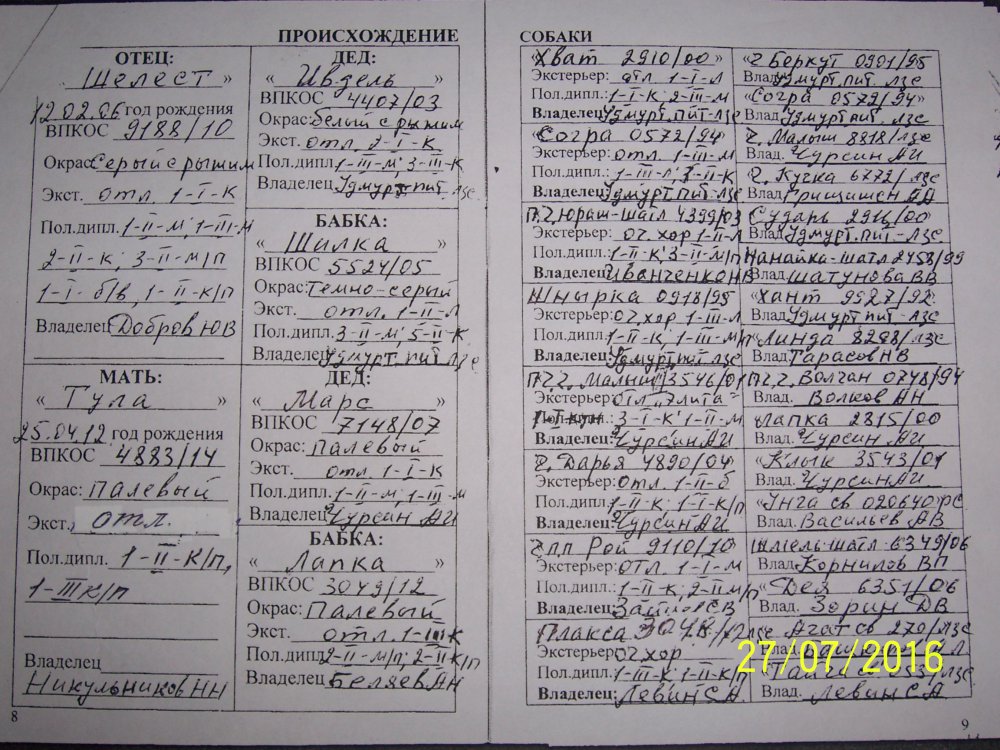 ПРОИСХОЖДЕНИЕ
ОТЕЦ:
« Шелест »
12.02.06 год рождения
ВПКОС 9188/10
Окрас: Серый с рыжим
Экст. отл. 1-I-К
Пол.дипл. 1-II-м, 1-III-м
2-II-к; 3-II-м/п
1-I-б/в, 1-II-к/п
Владелец Добров ЮВ
МАТЬ:
« Тула »
25.04.12 год рождения
ВПКОС 4883/14
Окрас: Палевый
Экст. отл.
Пол.дипл. 1-II-к/п,
1-III к/п
Владелец
Никульников НН
8
ДЕД:
« Ивдель »
ВПКОС 4407/03
Окрас: белый с рыжим
Экст. отл. 2-I-К
Пол.дипл. 1-III-м; 3-III-к
Владелец Удмурт.пит. лзс
БАБКА:
« Шилка »
ВПКОС 5524/05
Окрас: Темно-серый
Экст. отл. 1-II-л
Пол.дипл. 3-II-м; 5-II-к
Владелец: Удмурт.пит лзс
ДЕД:
« Марс »
ВПКОС 7148/07
Окрас: Палевый
Экст. отл. 1-I-К
Пол.дипл. 1-II-м; 1-III-м
Владелец: Чурсин АИ
БАБКА:
« Лапка »
ВПКОС 3049/12
Окрас: Палевый
Экст. отл. 1-III К
Пол.дипл. 2-II-м/п; 2-II-к/п
Владелец Беляев АН
СОБАКИ
«Хват 2910/00 »
Экстерьер: отл 1-I-л
Пол.дипл.: 1-I-к; 2-III-м
Владелец: Удмурт.пит-лзс
«Согра 0572/94
Экстерьер: отл. 1-III-м
Пол.дипл.: 1-III-л; 3-II-к
Владелец: Удмурт.пит-лзс
П.Ч. Юраш-шатл 4399/03
Экстерьер: оч.хор 1-II-л
Пол.дипл. 1-II-к; 3-II-м/п
Владелец: Иванченко НВ
Шнырка 0918/95
Экстерьер: оч.хор 1-III-л
Пол.дипл. 1-II-к, 1-III-м
Владелец: Удмурт.пит лзс
П.Ч.Ч. Малыш 3546/01
Экстерьер: отл "Элита"
3-I-к; 1-II-м
Владелец: Чурсин АИ
Ч. Дарья 4890/04
Экстерьер: отл. 1-II-б
Пол.дипл: 1-II-к; 1-II-к/п
Владелец: Чурсин АИ
Ч ПП Рой 9110/10
Экстерьер: отл 1-I-м
Пол.дипл.: 1-II-к; 2-II м/п
Владелец:
Плакса
Экстерьер: оч хор
Пол.дипл. 1-III-к; 1-II-к/п
Владелец: Левин СА
«Ч Беркут 0901/95
Влад. Удмурт.пит. лзс
«Согра 0572/94»
Влад. Удмурт.пит. лзс
Ч. Малыш 8818/лзс
Влад. Чурсин АИ
«Ч. Кучка 6772/лзс
Влад.
Сударь 2916/00
Влад Удмурт.пит-лзс
Нанайка-шатл 2458/99
Влад. Шатунова ВВ
«Хант 9527/92
Влад Удмурт.пит-лзс
«Линда 8298/лзс
Влад. Тарасов НВ
П.Ч.Ч. Волчан 0748/94
Влад. Волков АН
«Лапка 2815/00
Влад. Чурсин АИ
«Клык 3543/01
Влад. Чурсин АИ
«Унга св 020640 РС
Влад. Васильев АВ
Шмель-шатл 6349/06
Влад. Корнилов ВП
«Дея 6351/06
Влад. Зорин ДВ
Агат св 270/лзс
Влад. Левин СА
27/07/2016
9